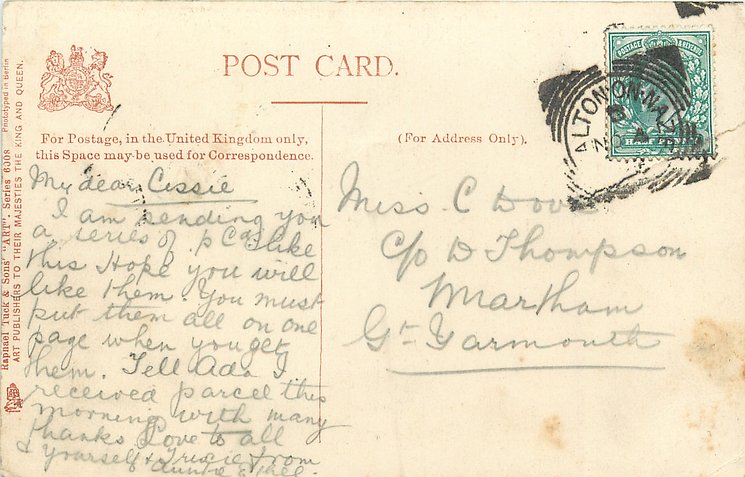 POST CARD.
For Postage, in the United Kingdom only,
this Space may be used for Correspondence.
(For Address Only).
HALF PENNY
POSTAGE & REVENUE
WALTON-ON-NAZE
My dear Cissie
I am sending you
a series of p Cds like
this Hope you will
like them. You must
put them all on one
page when you get
them. Tell Ada I
received parcel this
morning with many
thanks Love to all
& yourself & Trixie from
Auntie &
Miss C Dove
C/o D Thompson
Martham
Gt. Yarmouth
Raphael Tuck & Sons' "ART". Series 6008 Phototyped in Berlin
ART PUBLISHERS TO THEIR MAJESTIES THE KING AND QUEEN.